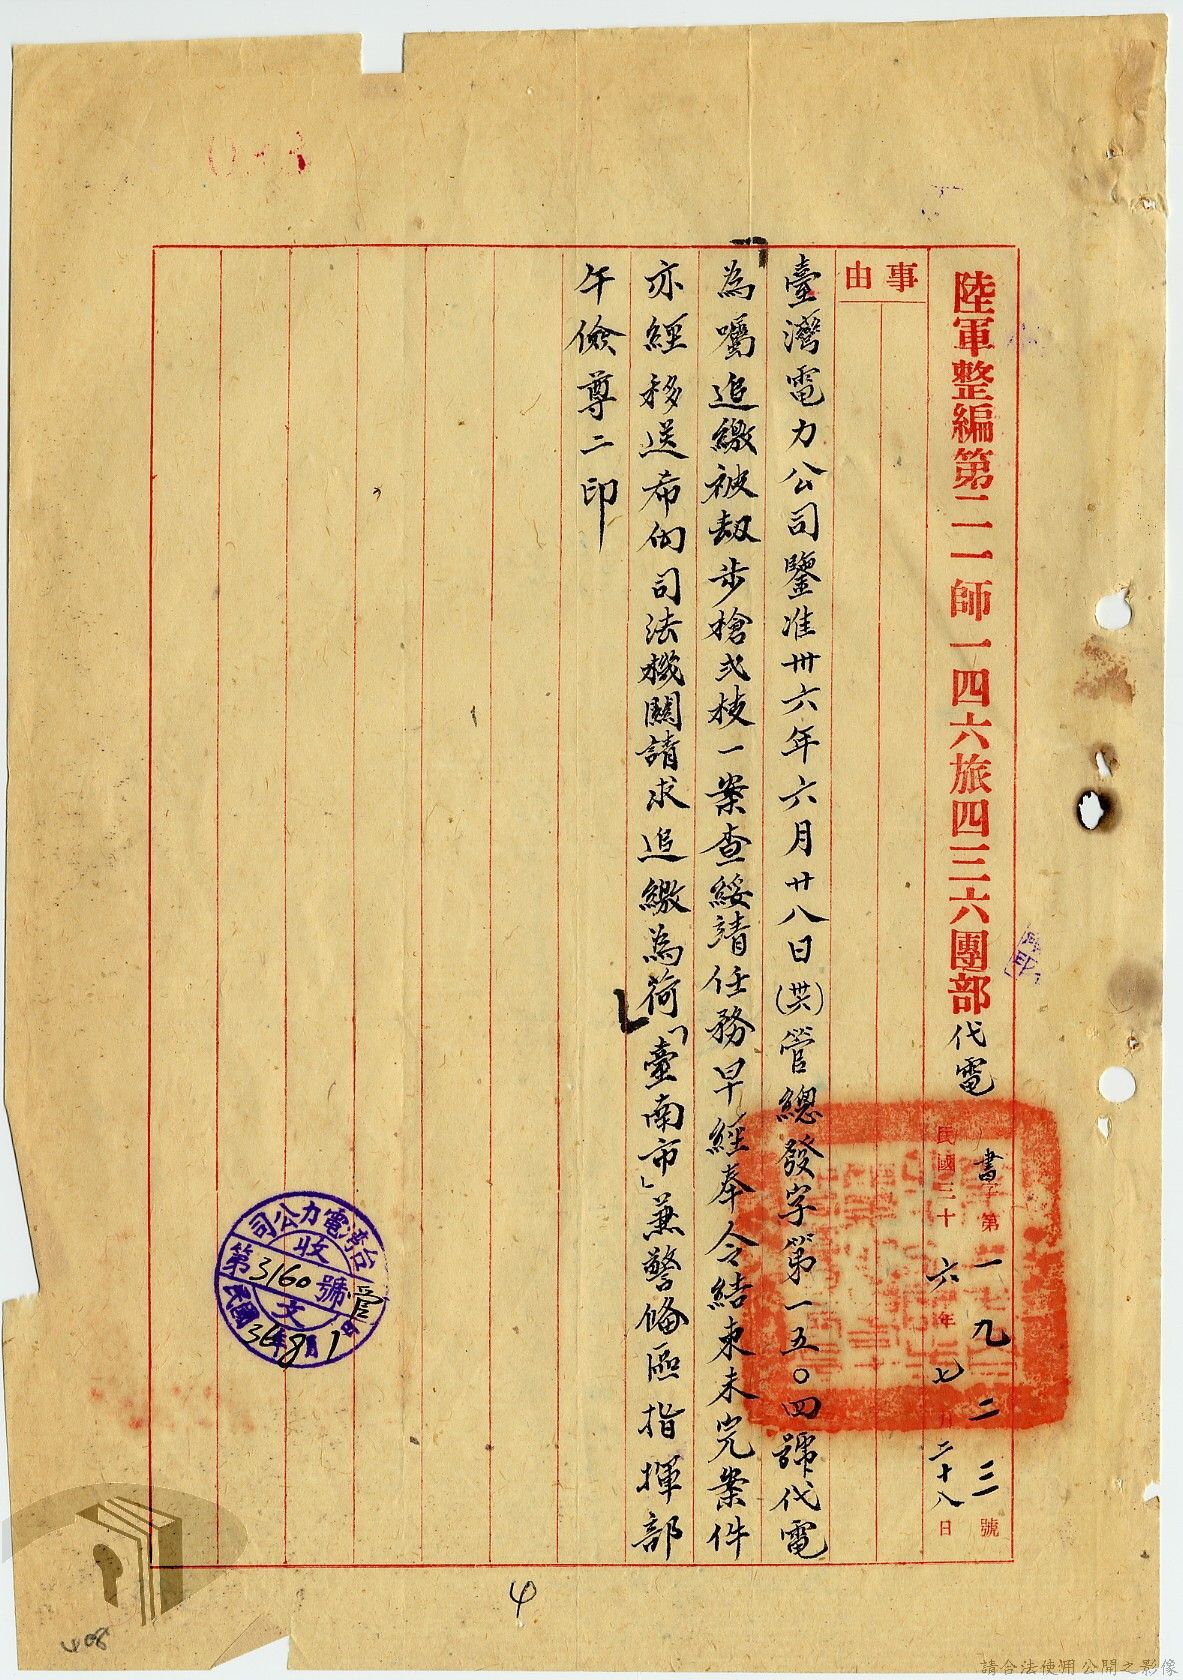 陸軍整編第二一師一四六旅四三六團部代電
書字第一九二三號
民國三十六年七月二十八日
事由
臺灣電力公司鑒准卅六年六月廿八日(共)管總發字第一五〇四號代電
為囑追繳被劫步槍弍枝一案查綏靖任務早經奉令結束未完案件
亦經移送希向司法機關請求追繳為荷「臺南市」兼警備區指揮部
午儉尊二印
台灣電力公司
收文
第3160號
民國36年8月1日
管
4
408
請合法使用公開之影像